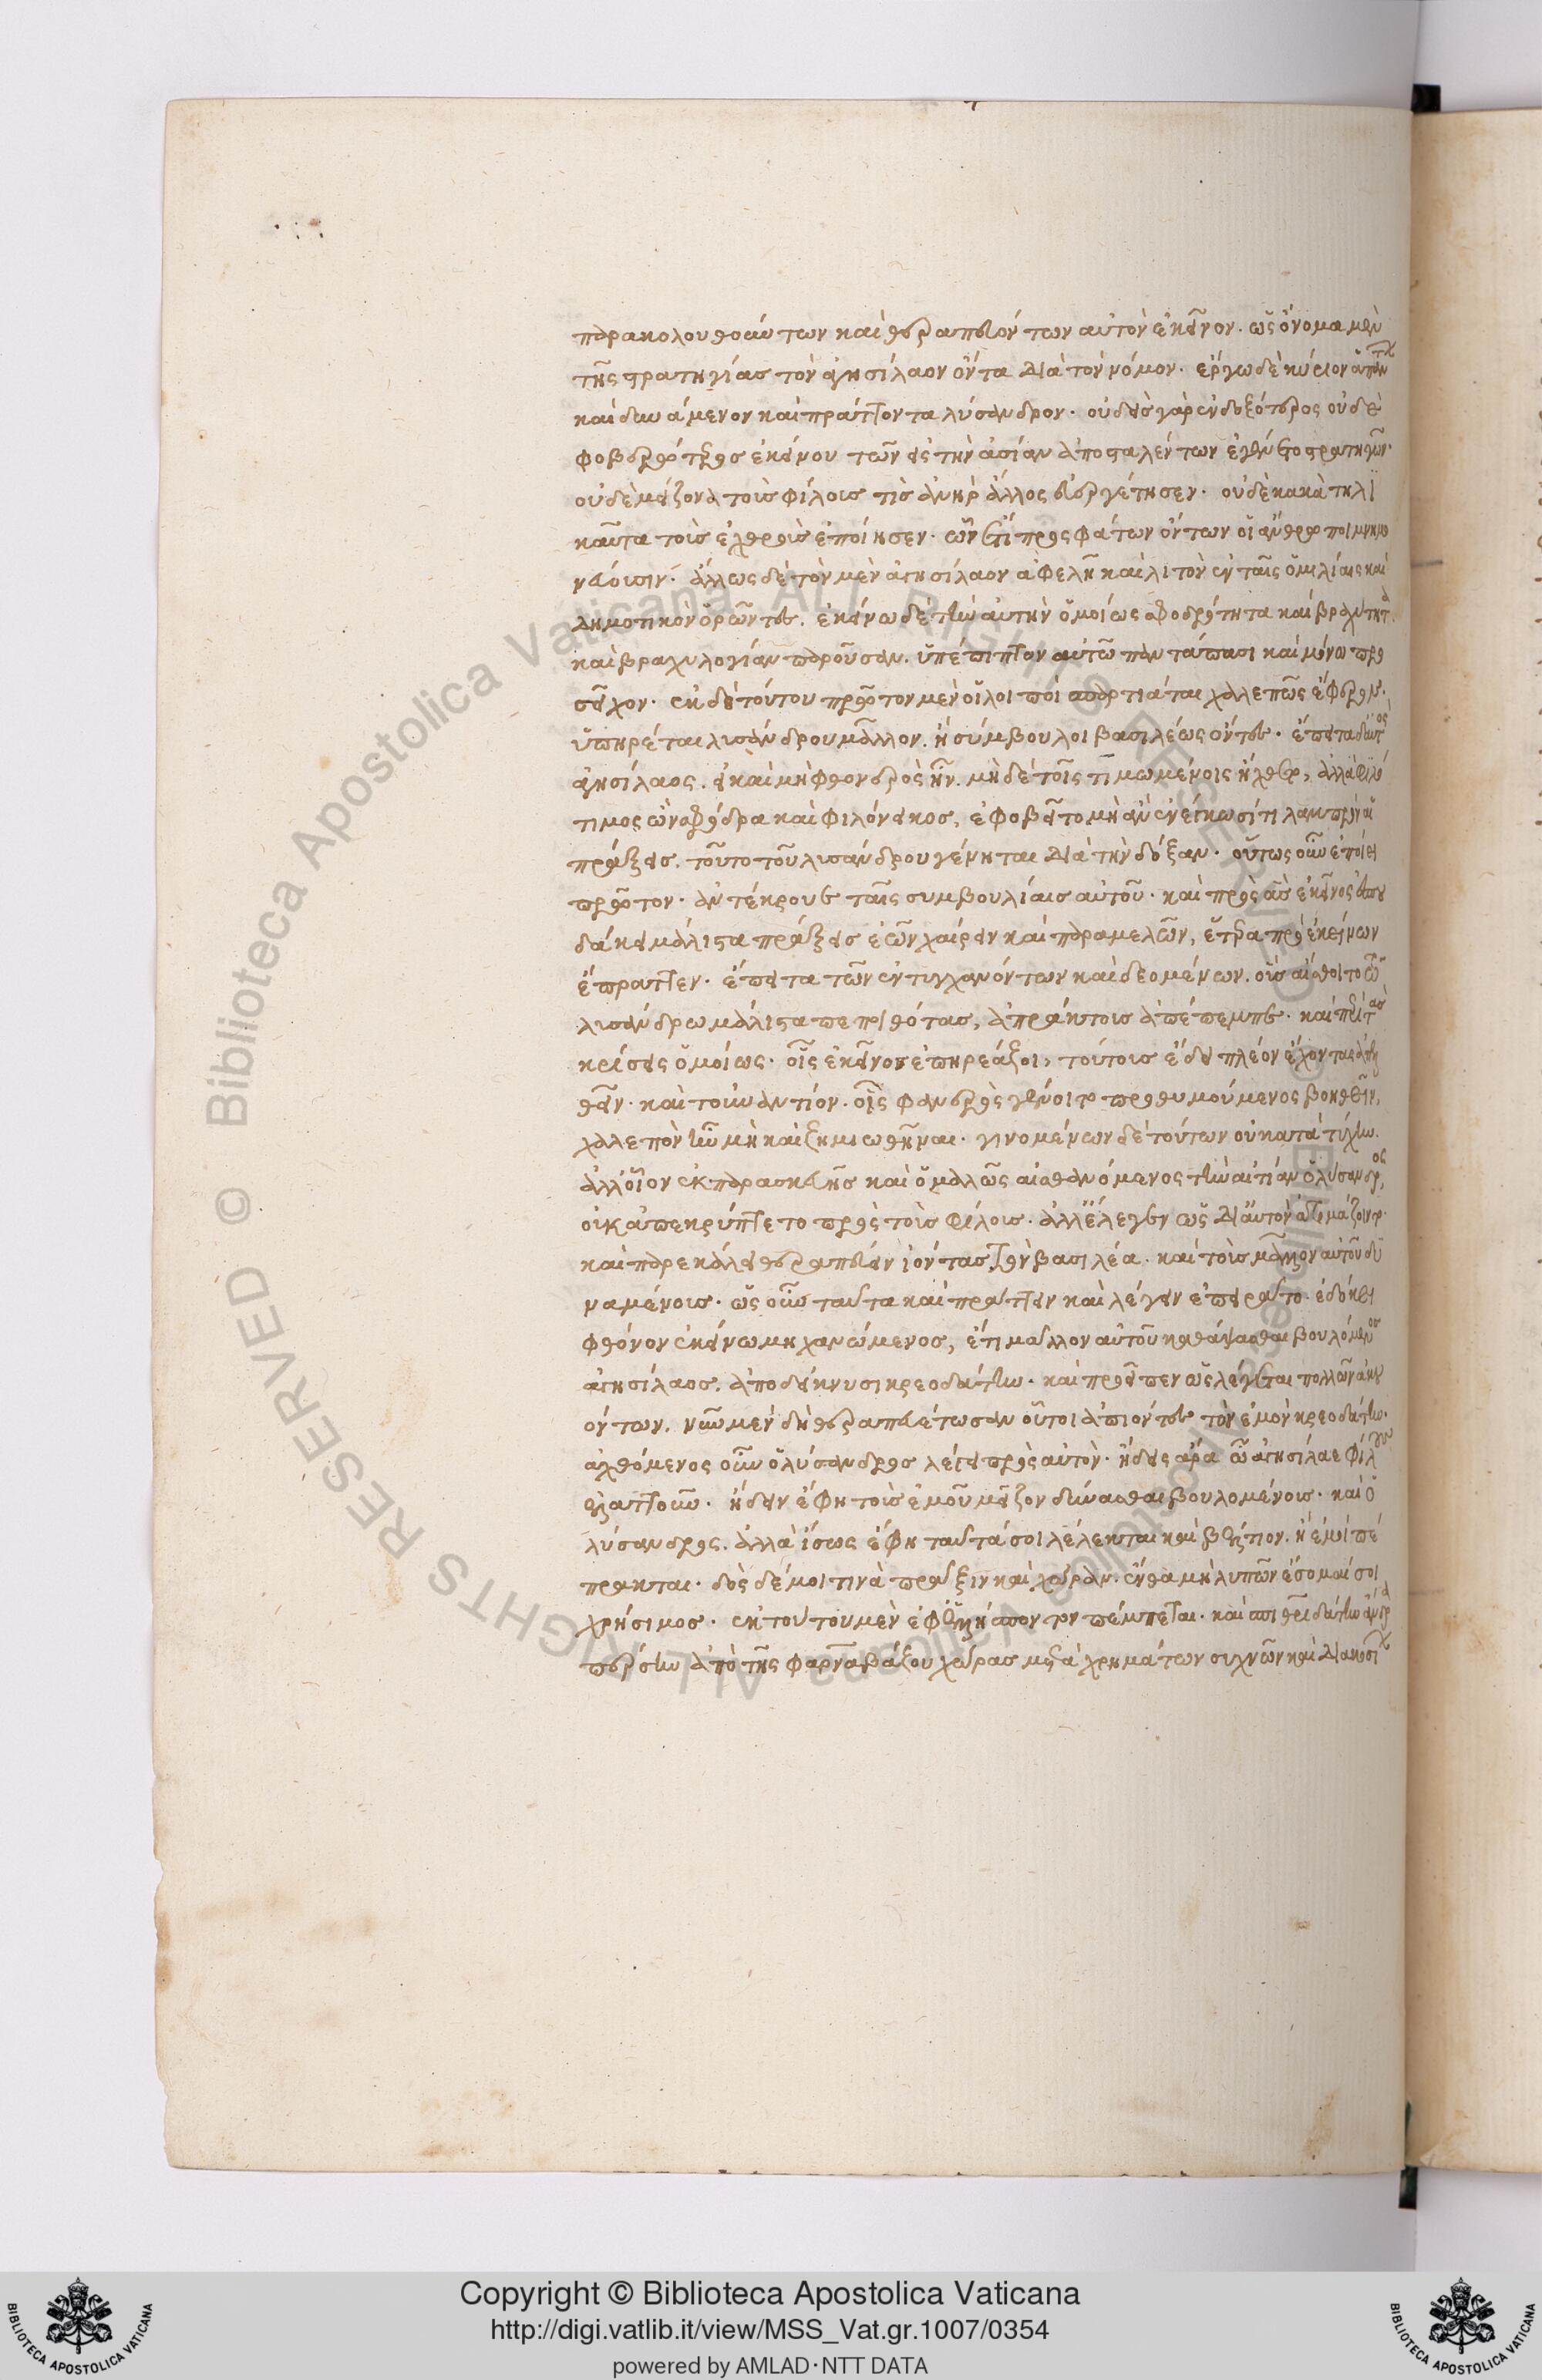 παρακολουθούντων καὶ θεραπευόντων αὐτὸν ἐκεῖνον. ὡς ὄνομα μὲν
τῆς στρατηγίας τὸν ἀγησίλαον ὄντα διὰ τὸν νόμον. ἔργω δὲ κύριον ἁπάντων
καὶ δυνάμενον καὶ πράττοντα λύσανδρον. οὐδεὶς γὰρ ἐνδοξότερος οὐδὲ
φοβερώτερος ἐκείνου τῶν εἰς τὴν ἀσίαν ἀποσταλέντων ἐγένετο στρατηγῶν.
οὐδὲ μείζονα τοὺς φίλους τὶς ἀνὴρ ἄλλος εὐεργέτησεν. οὐδὲ κακὰ τηλι
καῦτα τοὺς ἐχθροὺς ἐποίησεν. ὧν ἔτι προσφάτων ὄντων οἱ ἄνθρωποι μνημο
νεύοισιν. ἄλλως δὲ τὸν μὲν ἀγησίλαον ἀφελῆ καὶ λιτὸν ἐν ταῖς ὁμιλίαις καὶ
δημοτικὸν ὁρῶντες. ἐκείνω δὲ τὴν αὐτὴν ὁμοίως σφοδρότητα καὶ βραχύτητα
καὶ βραχυλογίαν παροῦσαν. ὑπέπιπτον αὐτῶ παντάπασι καὶ μόνω προ
σεῖχον. ἐκ δὲ τούτου πρῶτον μὲν οἱ λοιποὶ σπαρτιάται χαλεπῶς ἔφερον.
ὑπηρέται λισάνδρου μᾶλλον. ἢ σύμβουλοι βασιλέως ὄντες. ἔπειτα δ' αὐτὸς
ἀγησίλαος. εἰ καὶ μὴ φθονερὸς ἦν. μὴ δὲ τοῖς τιμωμένοις ἤχθετο, ἀλλὰ φιλό
τιμος ὢν σφόδρα καὶ φιλόνεικος, ἐφοβεῖτο μὴ ἂν ἐνείκωσί τι λαμπρὸν αἱ
πράξεις. τοῦτο τοῦ λισάνδρου γένηται διὰ τὴν δόξαν. οὕτως οὖν ἐποίει
πρῶτον. ἀντέκρουε ταῖς συμβουλίαις αὐτοῦ. καὶ πρὸς ἃς ἐκεῖνος ἐσπου
δάκει μάλιστα πράξεις ἐῶν χαίρειν καὶ παραμελῶν, ἕτερα πρὸ ἐκείνων
ἔπραττεν. ἔπειτα τῶν ἐντυγχανόντων καὶ δεομένων. οὓς αἴσθοιτο τῶ
λισάνδρω μάλιστα πεποιθότας, ἀπράκτους ἀπέπεμπε. καὶ περὶ τὰς
κρίσεις ὁμοίως. οἷς ἐκεῖνος ἐπηρεάζοι, τούτους ἔδει πλέον ἔχοντας ἀπελ
θεῖν. καὶ τοὐναντίον. οἷς φανερὸς γένοιτο προθυμούμενος βοηθεῖν,
χαλεπὸν ἦν μὴ καὶ ζημιωθῆναι. γινομένων δὲ τούτων οὐ κατὰ τύχην.
ἀλλ' οἷον ἐκ παρασκευῆς καὶ ὁμαλῶς αἰσθανόμενος τὴν αἰτίαν ὁ λύσανδρος,
οὐκ ἀπεκρύπτετο πρὸς τοὺς φίλους. ἀλλ' ἔλεγεν ὡς δι' αὐτὸν ἀτιμάζοιντο.
καὶ παρεκάλει θεραπεύειν ἰόντας τὸν βασιλέα. καὶ τοὺς μᾶλλον αὐτοῦ δυ
ναμένους. ὡς οὖν ταῦτα καὶ πράττειν καὶ λέγειν ἐπειρᾶτο. ἐδόκει
φθόνον ἐκείνω μηχανώμενος, ἔτι μᾶλλον αὐτοῦ καθάψασθαι βουλόμενος
ἀγησίλαος. ἀποδείκνυσι κρεοδαίτην. καὶ προσεῖπεν ὡς λέγεται πολλῶν ἀκου
όντων. νῦν μὲν δὴ θεραπευέτωσαν οὗτοι ἀπιόντες τὸν ἐμὸν κρεοδαίτην.
ἀχθόμενος οὖν ὁ λύσανδρος λέγει πρὸς αὐτὸν. ἤδεις ἄρα ὦ ἀγησίλαε φίλους
ἐλαττοῦν. ἤδειν ἔφη τοὺς ἐμοῦ μεῖζον δύνασθαι βουλομένους. καὶ ὁ
λύσανδρος. ἀλλὰ ἴσως ἔφη ταῦτά σοι λέλεκται καὶ βέλτιον. ἢ ἐμοὶ πέ
πρακται. δὸς δέ μοι τινὰ πρᾶξιν καὶ χώραν. ἔνθα μὴ λυπῶν ἔσομαί σοι
χρήσιμος. ἐκ τούτου μὲν ἐφ' ἑλλήσποντον πέμπεται. καὶ σπιθριδάτην ἄνδρα
πέρσην ἀπὸ τῆς φαρναβάζου χώρας μετὰ χρημάτων συχνῶν καὶ διακοσί
Copyright © Biblioteca Apostolica Vaticana
http://digi.vatlib.it/view/MSS_Vat.gr.1007/0354
powered by AMLAD·NTT DATA